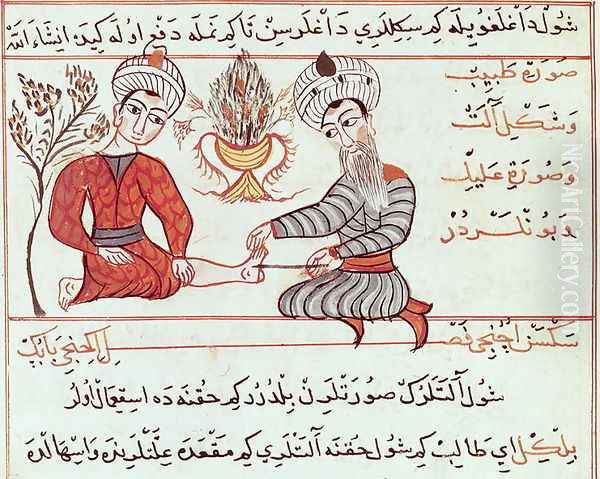 شول داغلغويله كم سكللري داغلرسن تا كم نمله دفع اوله كيده انشاء الله
صورة طبيب
وشكل آلت
وصورة عليل
وبونلردر
سكسن اچنجي فصل اكنجي بابك
شول آلتلرك صورتلرن بلدرر كم حقنه ده استعمال اولر
بلكل اي طالب كم شول حقنه آلتلري كم مقعده علتلرنده واسهالده
NiceArtGallery.com